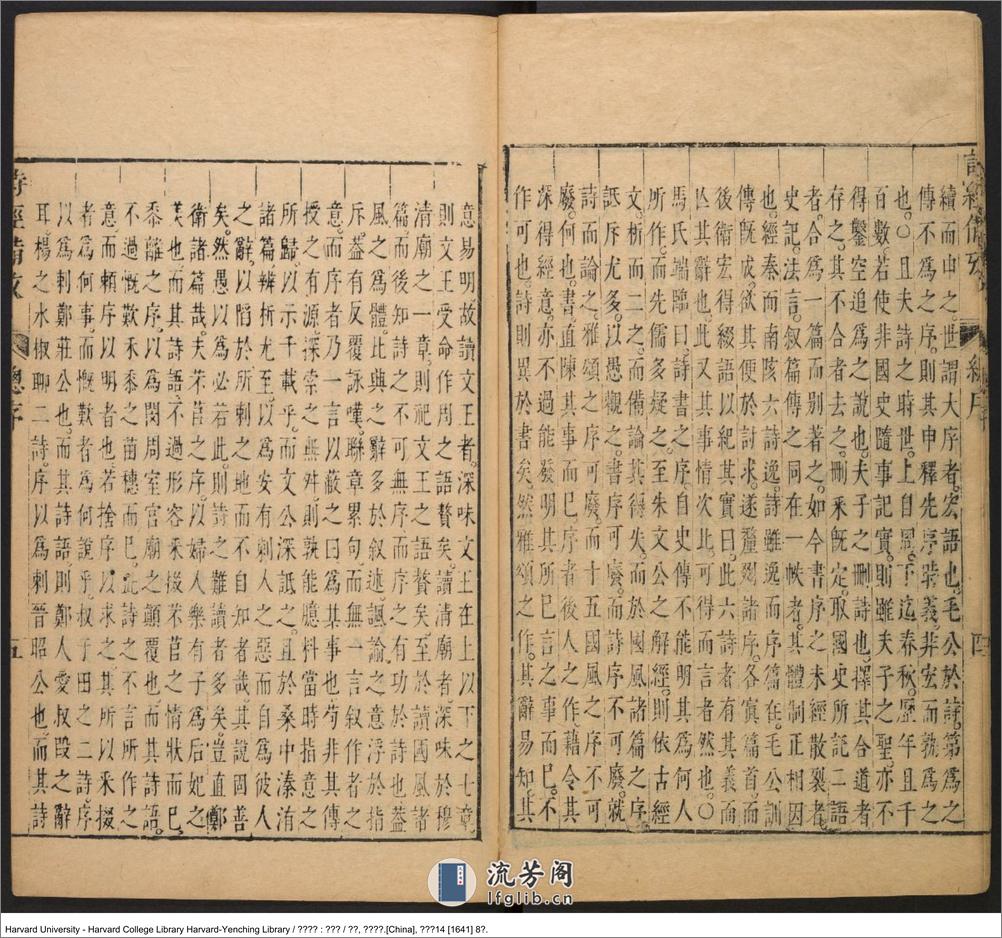 詩經備攷 總序 四
續而申之。世謂大序者。宏語也。毛公於詩。第為之
傳不為之序。則其申釋先序時義。非宏而孰為之
也。○且夫詩之時世。上自周。下迄春秋。歷年且千
百數若使非國史隨事記實。則雖夫子之聖亦不
得鑿空追為之說也。夫子之刪詩也。擇其合道者
存之。其不合者去之。刪釆旣定。取國史所記二語
者。合為一篇而別著之。如今書序之未經散裂者。
史記法言。叙篇傳之同在一帙者。其體制正相因
也。經秦而南陔六詩逸。詩雖逸而序篇在。毛公訓
傳旣成。欲其便於討求。遂釐剟序。各寘篇首。而
後衛宏得綴語以紀其實曰。此六詩者。有其義而
亾其辭也。此又其事情次比。可得而言者然也。○
馬氏端臨曰。詩書之序。自史傳不能明其為何人
所作。而先儒多疑之。至朱文公之解經。則依古經
文。析而二之。而備論其得失。而於國風諸篇之序
詆斥尤多。以愚觀之。書序可廢。而詩序不可廢。就
詩而論之。雅頌之序可廢。而十五國風之序不可
廢。何也。書直陳其事而已。序者後人之作。藉令其
深得經意。亦不過能發明其所已言之事而已。不
作可也。詩則異於書矣。然雅頌之作。其辭易知。其
意易明。故讀文王者。深味文王在上以下之七章。
則文王受命作周之語贅矣。讀清廟者。深味於穆
清廟之一章。則祀文王之語贅矣。至於讀國風諸
篇而後知詩之不可無序。而序之有功於詩也。蓋
風之為體。比興之辭多於叙述。諷諭之意浮於指
斥。蓋有反覆詠嘆。聯章累句。而無一言叙作者之
意。而序者乃一言以蔽之曰為其事也。苟非其傳
授之有源。探索之無舛。則孰能臆料當時指意之
所歸。以示千載乎。而文公深詆之。且於桑中溱洧
諸篇辨析尤至。以為安有刺人之惡。而自為彼人
之辭。以陷於所刺之地而不自知者哉。其說固善
矣。然愚以為必若此。則詩之難讀者多矣。豈直鄭
衛諸篇哉。夫芣苢之序。以婦人樂有子。為后妃之
美也。而其詩語。不過形容釆掇芣苢之情狀而已。
黍離之序。以為閔周室宮廟之顛覆也。而其詩語。
不過慨歎禾黍之苗穗而已。此詩之不言所作之
意。而賴序以明者也。若捨序以求之。其所以釆掇
者為何事。而慨歎者為何說乎。叔于田之二詩。序
以為刺鄭莊公也。而其詩語。則鄭人愛叔段之辭
耳。楊之水椒聊二詩。序以為刺晉昭公也。而其詩
詩經備攷 總序 五
流芳阁
lfglib.cn
Harvard University - Harvard College Library Harvard-Yenching Library / ???? : ??? / ??, ????.[China], ???14 [1641] 8?.